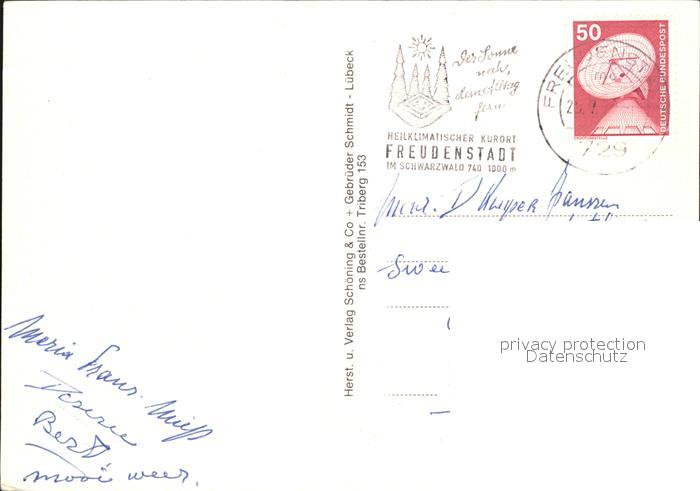 Der Sonne
nah,
dem Alltag
fern
HEILKLIMATISCHER KURORT
FREUDENSTADT
IM SCHWARZWALD 740-1000 m
50
DEUTSCHE BUNDESPOST
FREUDENSTADT
729
Herst. u. Verlag Schöning & Co + Gebrüder Schmidt - Lübeck
ns Bestellnr. Triberg 153
D Kuyper Janssen
privacy protection
Datenschutz
Maria Frans. Miep
Bert
mooi weer.